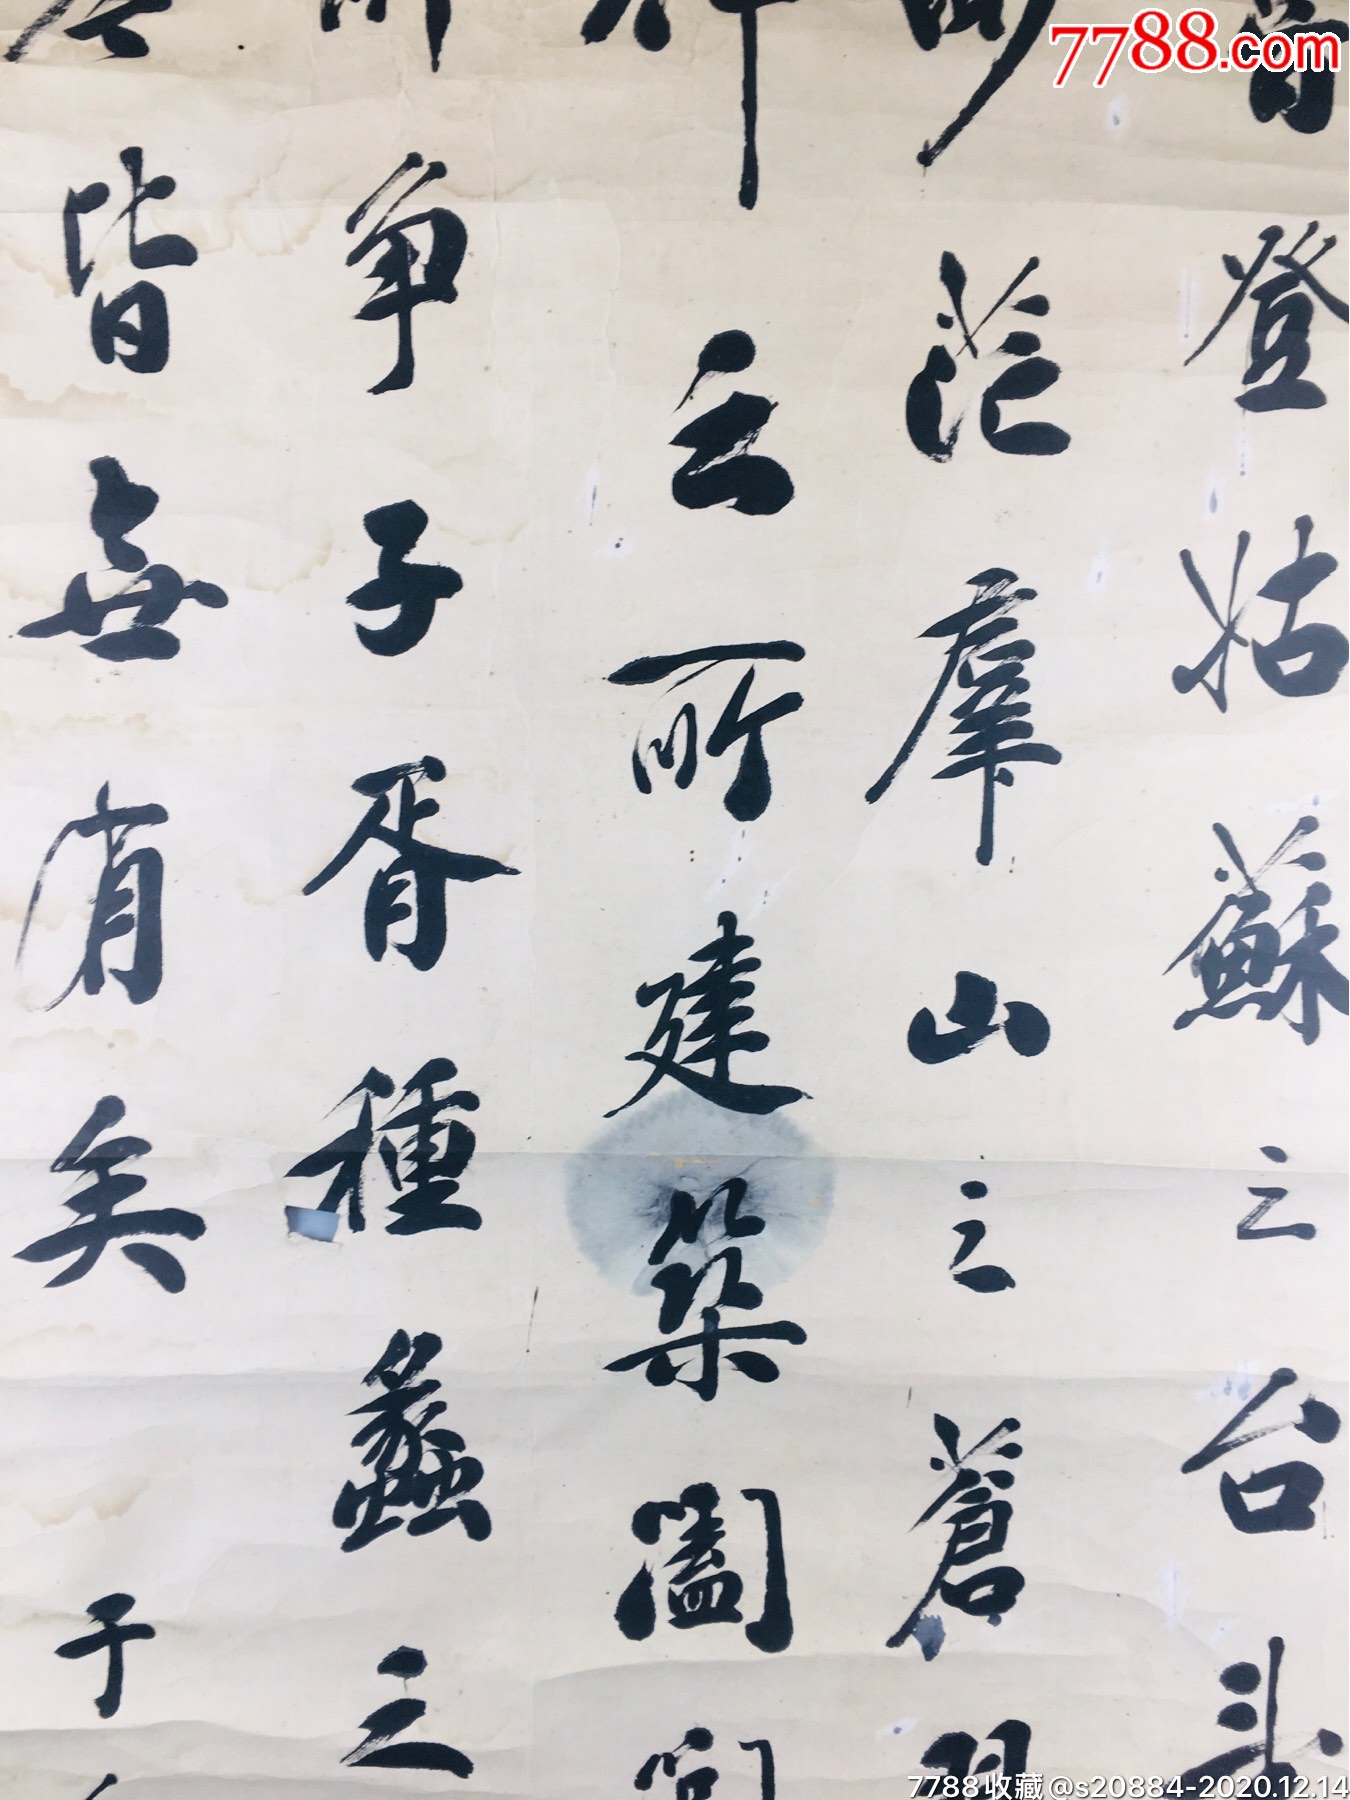 7788.com
登姑蘇之台
茫羣山之蒼
之所建築闔
爭子胥種蠡之
皆無有矣于
7788收藏@s20884-2020.12.14